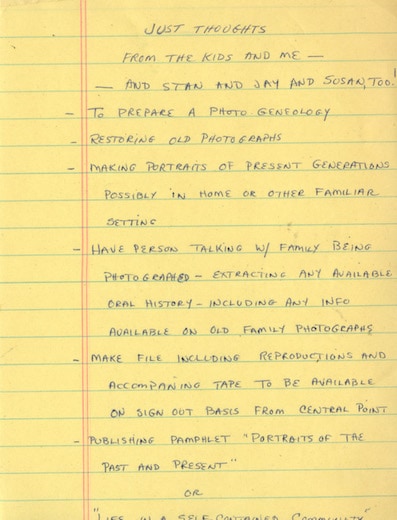 JUST THOUGHTS
FROM THE KIDS AND ME —
— AND STAN AND JAY AND SUSAN, TOO.
- TO PREPARE A PHOTO GENEOLOGY
- RESTORING OLD PHOTOGRAPHS
- MAKING PORTRAITS OF PRESENT GENERATIONS
POSSIBLY IN HOME OR OTHER FAMILIAR
SETTING
- HAVE PERSON TALKING W/ FAMILY BEING
PHOTOGRAPHED – EXTRACTING ANY AVAILABLE
ORAL HISTORY – INCLUDING ANY INFO
AVAILABLE ON OLD FAMILY PHOTOGRAPHS
- MAKE FILE INCLUDING REPRODUCTIONS AND
ACCOMPANING TAPE TO BE AVAILABLE
ON SIGN OUT BASIS FROM CENTRAL POINT
- PUBLISHING PAMPHLET "PORTRAITS OF THE
PAST AND PRESENT"
OR
"LIFE IN A SELF CONTAINED COMMUNITY"